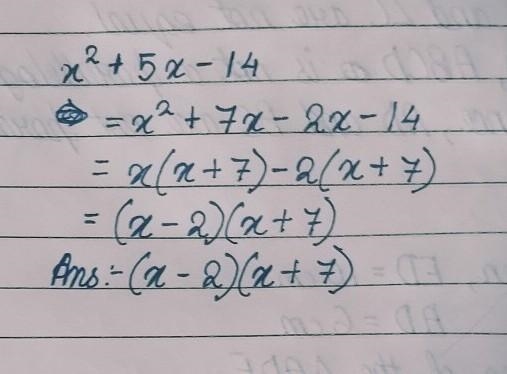 x² + 5x - 14
= x² + 7x - 2x - 14
= x(x + 7) - 2(x + 7)
= (x - 2)(x + 7)
Ans:- (x - 2)(x + 7)